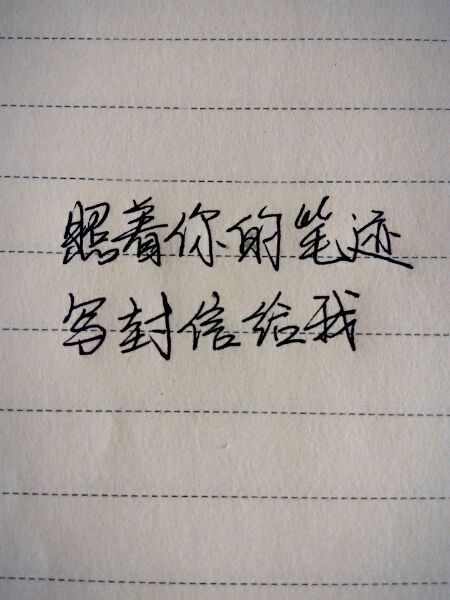 照着你的笔迹
写封信给我